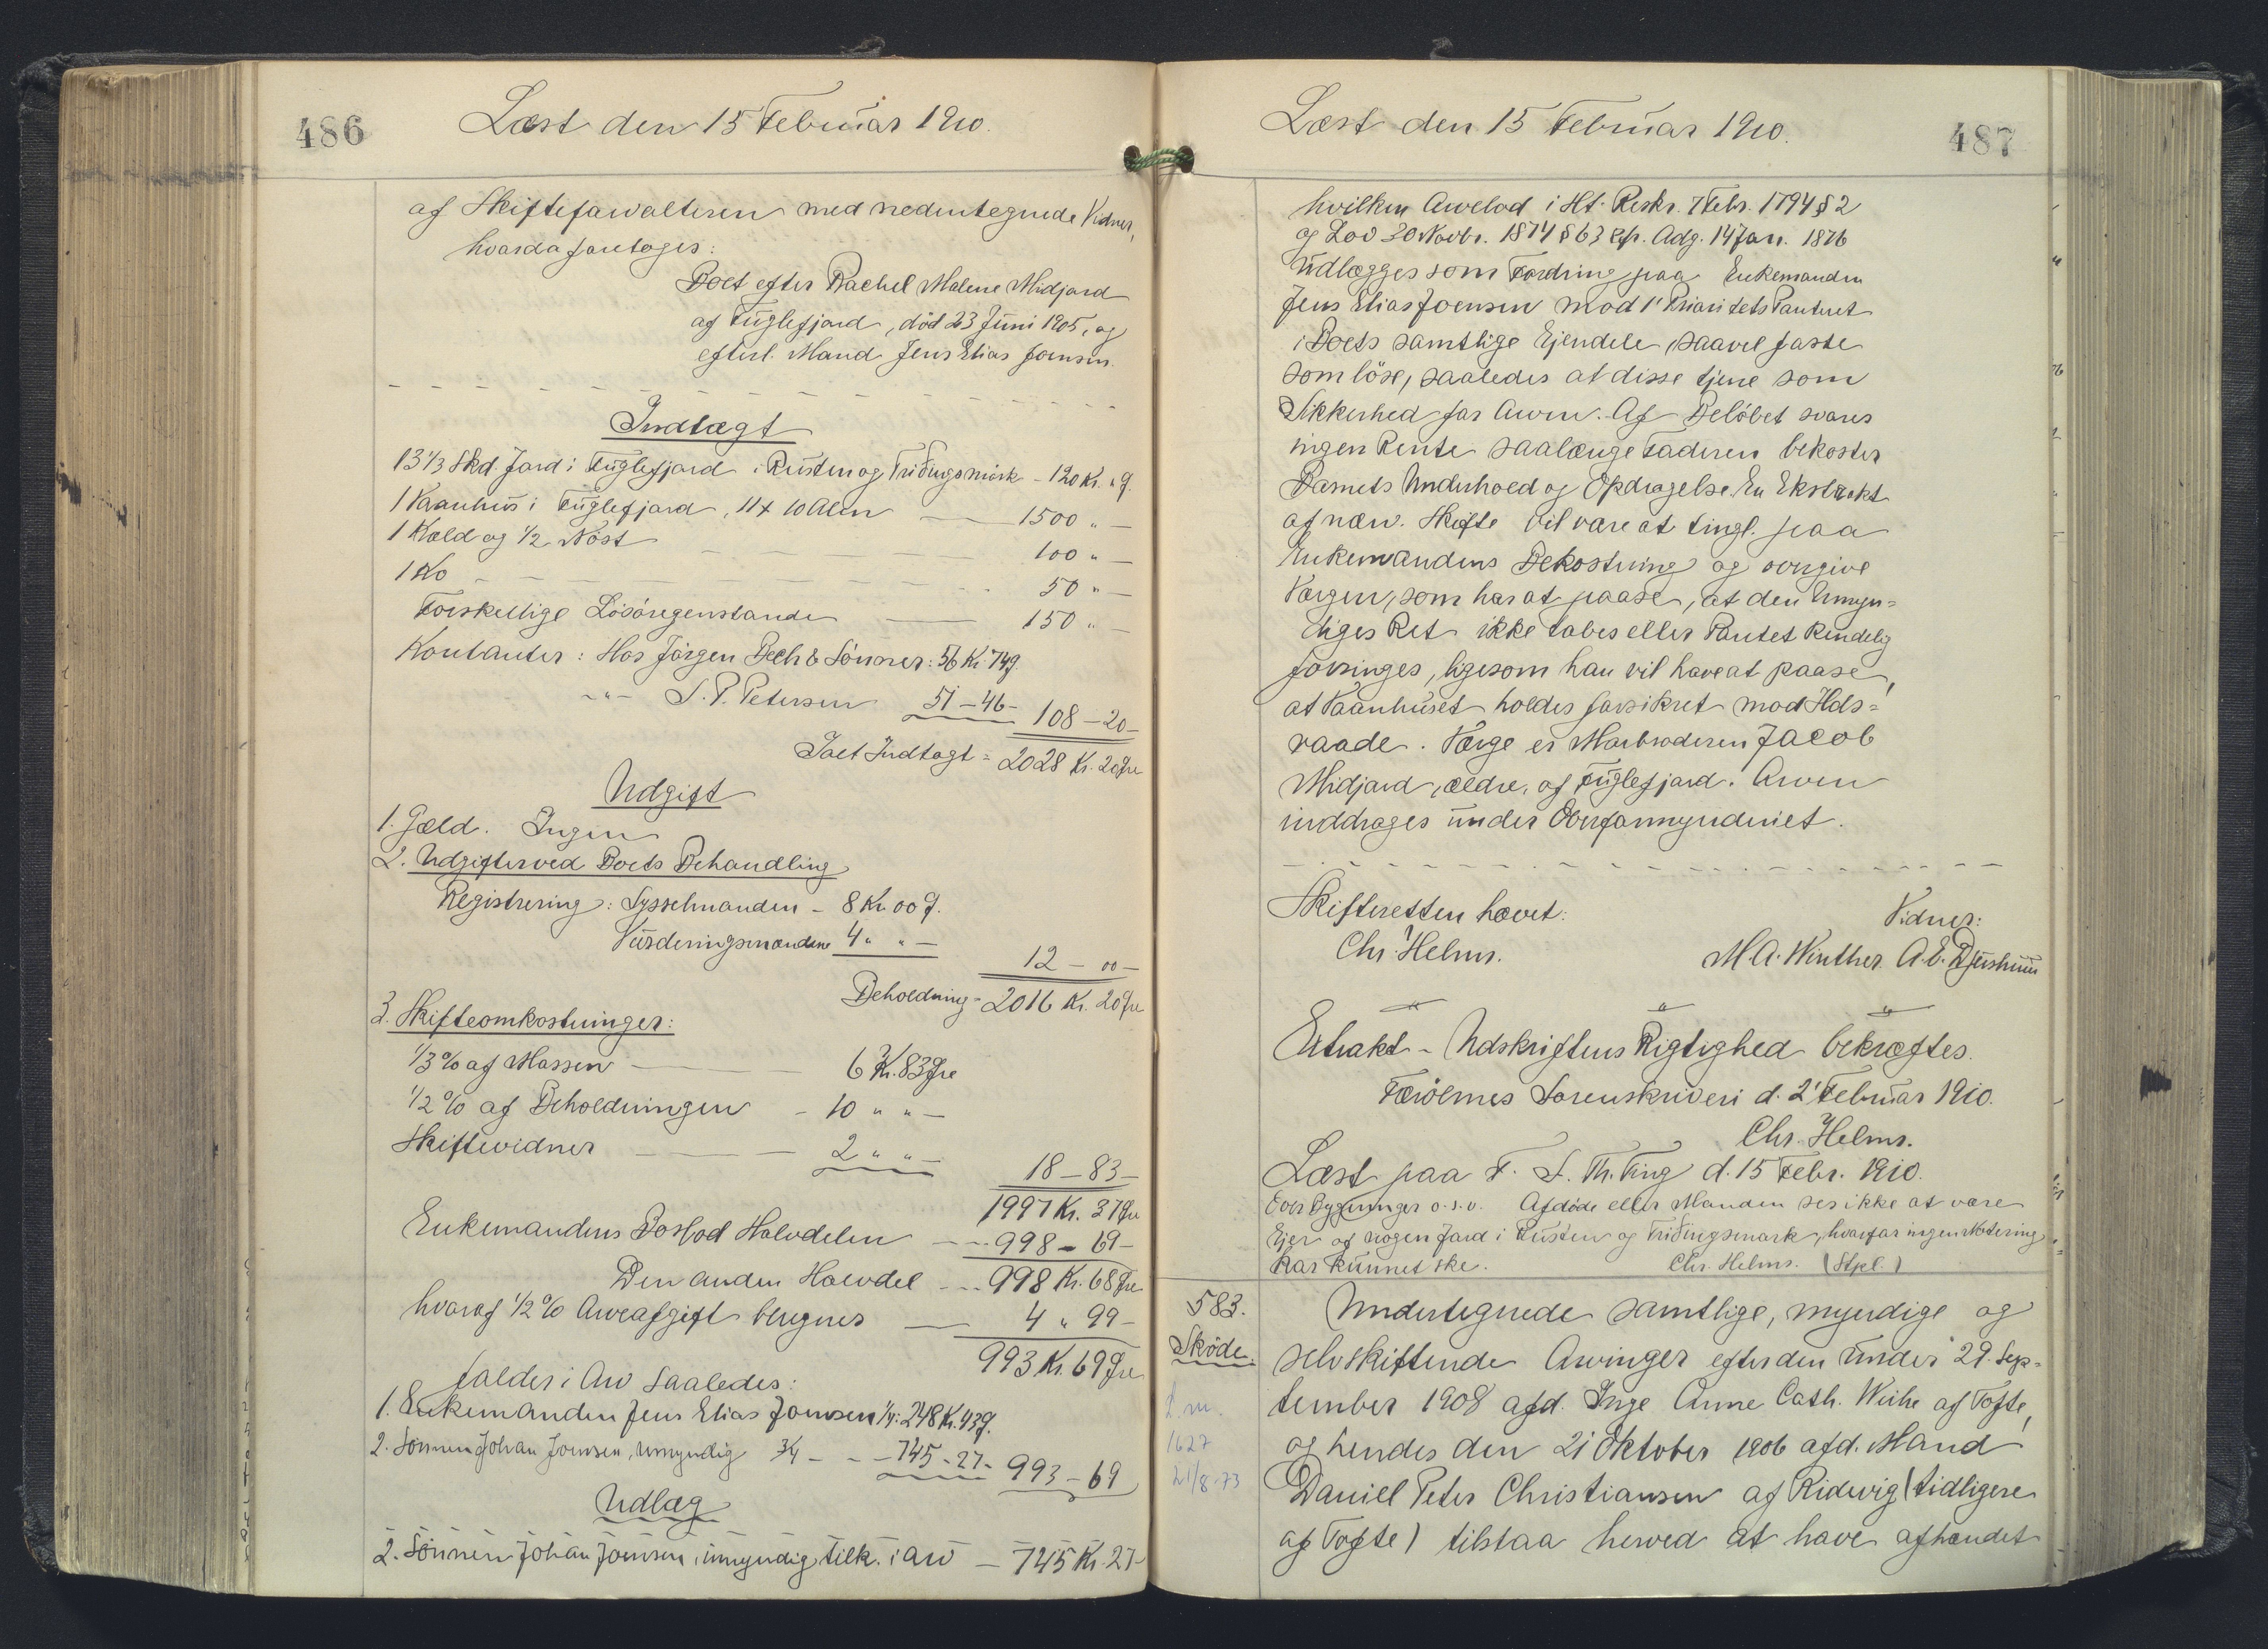 486
Læst den 15 Februar 1910.
af Skifteforvalteren med nedentegnede Vidner,
hvorda foretoges:
Boet efter Rachel Malene Midjord
af Fuglefjord, död 23 Juni 1905, og
efterl. Mand Jens Elias Joensen.
Indtægt
13 1/3 Skd. Jord i Fuglefjord i Rusten og Triðingsmörk - 120 Kr. " Ø.
1 Vaanhus i Fuglefjord, 11 x 10 Alen — 1500 " —
1 Kjæld og 1/2 Nöst — 100 " —
1 Ko — 50 " —
Forskellige Lösöregenstande — 150 " —
Kontanter: Hos Jörgen Bech & Sönner: 56 Kr. 74 Ø.
-"- S. P. Petersen 51 - 46 - 108 - 20 -
Ialt Indtægt = 2028 Kr. 20 Øre
Udgift
1. Gæld. Ingen
2. Udgifter ved Boets Behandling
Registrering: Sysselmanden - 8 Kr. 00 Ø.
Vurderingsmændene 4 " " —
12 - 00 -
Beholdning = 2016 Kr. 20 Øre
3. Skifteomkostninger:
1/3 % af Massen — 6 Kr. 83 Øre
1/2 % af Beholdningen - 10 " " —
Skiftevidner — 2 " " —
18 - 83 -
1997 Kr. 37 Øre
Enkemandens Boslod Halvdelen — 998 - 69 -
Den anden Halvdel - - - 998 Kr. 68 Øre
hvoraf 1/2 % Arveafgift beregnes — 4 " 99 -
993 Kr. 69 Øre
falder i Arv saaledes:
1. Enkemanden Jens Elias Joensen 1/4: 248 Kr. 43 Ø.
2. Sönnen Johan Joensen, umyndig 3/4 - - 745 - 27 - 993 - 69
Udlæg
2. Sönnen Johan Joensen, umyndig, tilk. i Arv — 745 Kr. 27
Læst den 15 Februar 1910.
487
hvilken Arvelod i Hht. Reskr. 7 Febr. 1794 § 2
og Lov 30 Novbr. 1874 § 63 cfr. Adg. 14 Jan. 1876
udlægges som Fordring paa Enkemanden
Jens Elias Joensen mod 1' Prioritets Panteret
i Boets samtlige Ejendele, saavel faste
som löse, saaledes at disse tjene som
Sikkerhed for Arven. Af Belöbet svares
ingen Rente saalænge Faderen bekoster
Barnets Underhold og Opdragelse. En Ekstrakt
af nærv. Skifte vil være at tingl. paa
Enkemandens Bekostning og overgive
Værgen, som har at paase, at den Umyn=
diges Ret ikke tabes eller Pantet kendelig
forringes, ligesom han vil have at paase,
at Vaanhuset holdes forsikret mod Ilds=
vaade. Værge er Morbroderen Jacob
Midjord, ældre, af Fuglefjord. Arven
inddrages under Overformynderiet.
Skifteretten hævet:
Chr. Helms.
Vidner:
M. A. Winther. A. E. Djurhuus
Extrakt - Udskriftens Rigtighed bekræftes.
Færöernes Sorenskriveri d. 2' Februar 1910.
Chr. Helms.
Læst paa F. S. Th. Ting d. 15 Febr. 1910.
Ovfr. Bygninger o. s. v. Afdöde eller Manden ses ikke at være
Ejer af nogen Jord i Rusten og Triðingsmörk, hvorfor ingen Notering
har kunnet ske. Chr. Helms. (Stpl.)
583.
Sköde.
1627
21/8-73
Undertegnede samtlige, myndige og
selvskiftende Arvinger efter den under 29. Sep=
tember 1908 afd. Inge Anne Cath. Weihe af Tofte,
og hendes den 21 Oktober 1906 afd. Mand
Daniel Peter Christiansen af Ridevig (tidligere
af Tofte) tilstaa herved at have afhændet